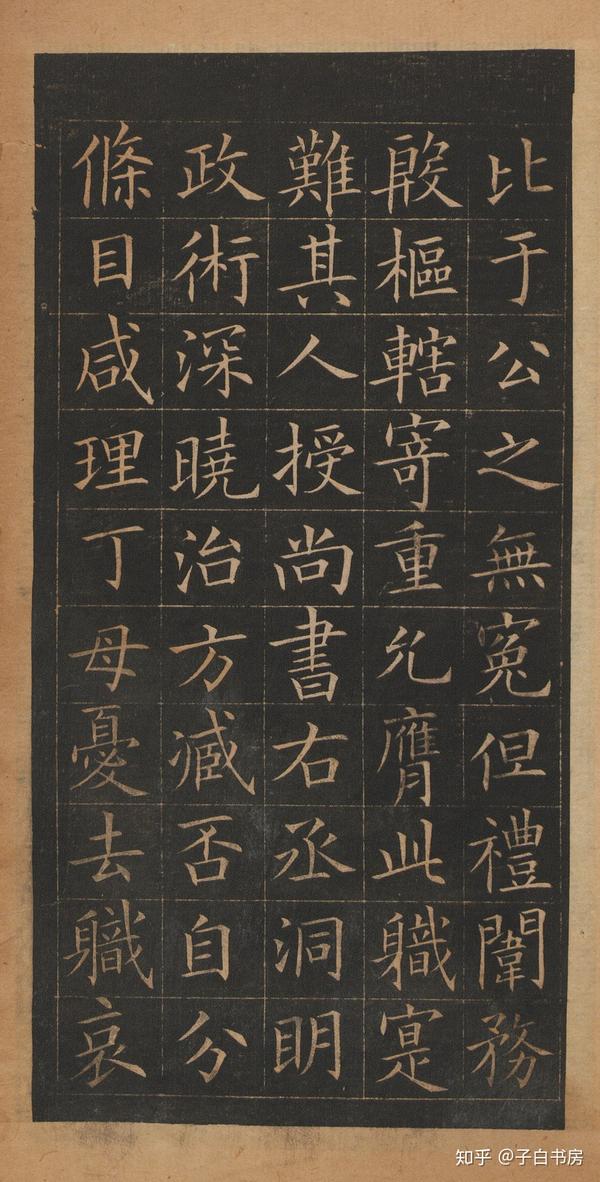 比于公之無寃但禮闈務
殷樞轄寄重允膺此職寔
難其人授尚書右丞洞明
政術深曉治方臧否自分
條目咸理丁母憂去職哀
知乎 @子白书房